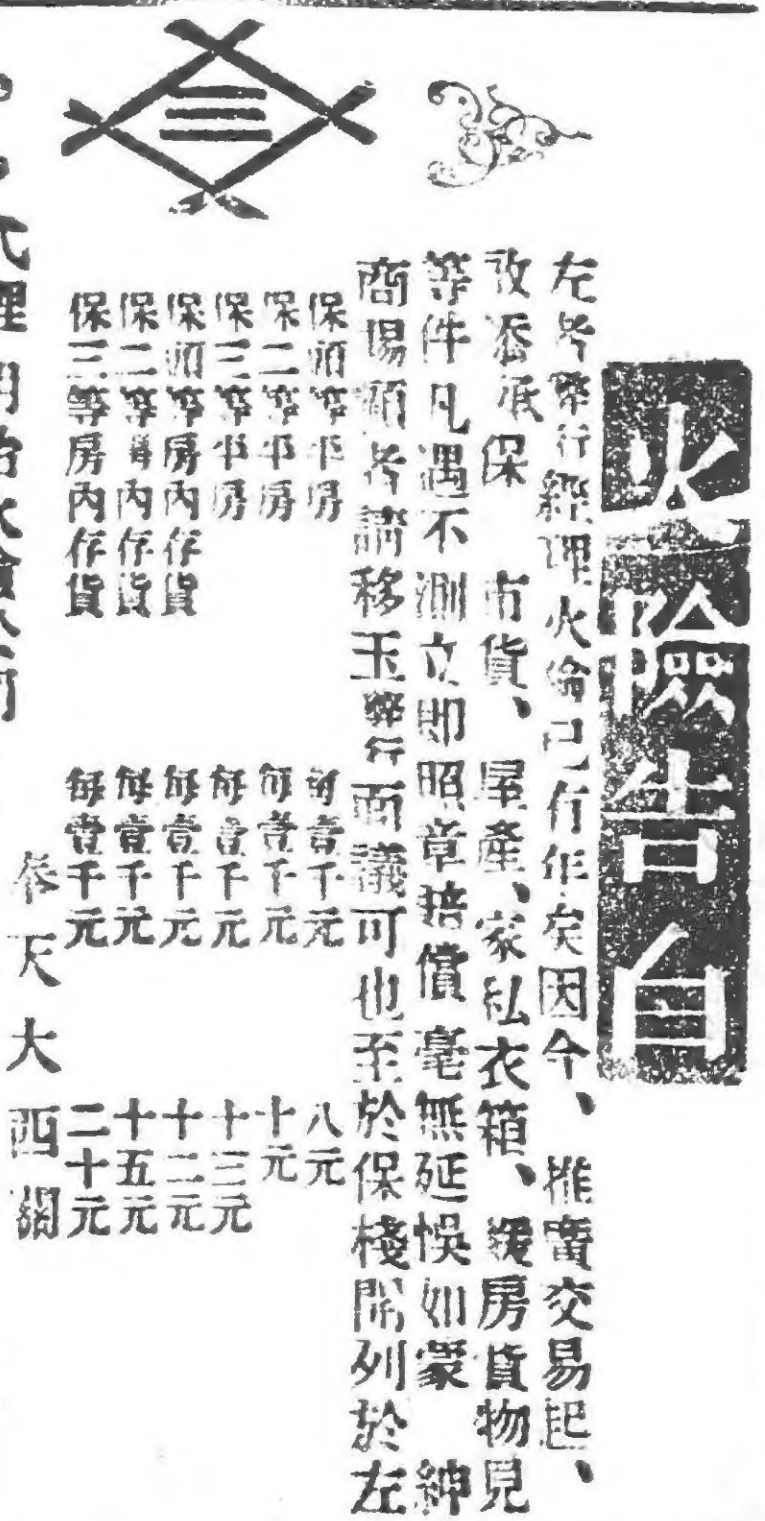 火險告白
左者弊行經理火險已有年矣因今、推廣交易起、
改添承保 市貨、屋產、家私衣箱、緩房貨物見
等件凡遇不測立即照章賠償毫無延悞如蒙 紳
商賜顧者請移玉弊行面議可也至於保棧開列於左
保頭等平房 每壹千元 八元
保二等平房 每壹千元 十元
保三等平房 每壹千元 十三元
保頭等房內存貨 每壹千元 十二元
保二等房內存貨 每壹千元 十五元
保三等房內存貨 每壹千元 二十元
奉天大西關
代理明治火險公司